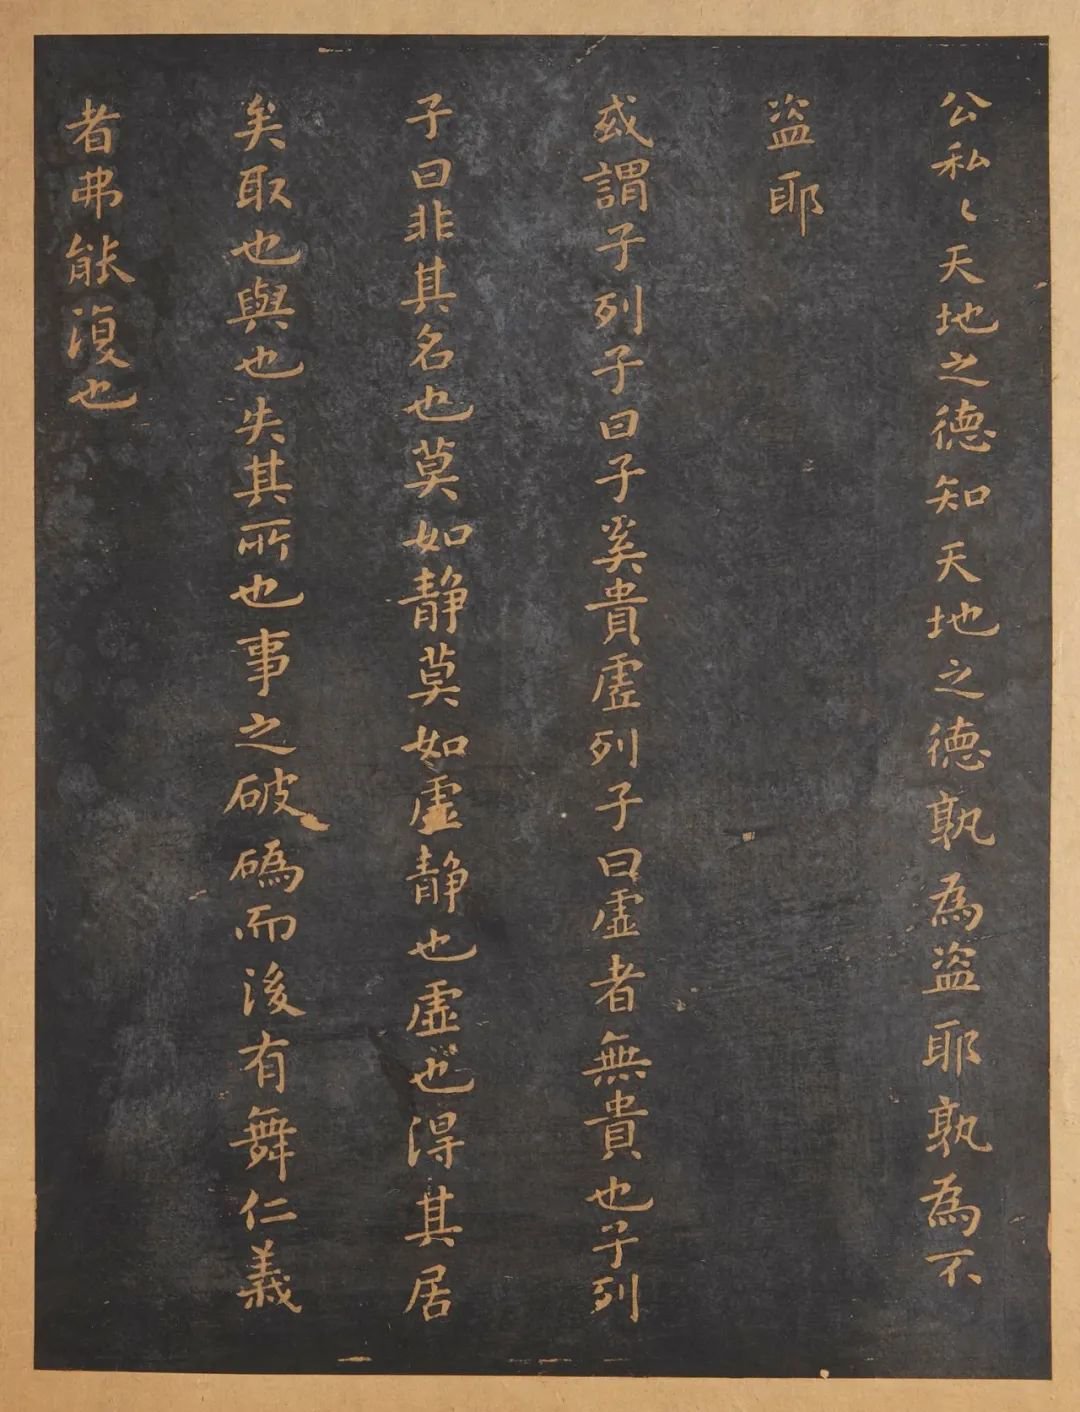 公私〻天地之德知天地之德孰為盜耶孰為不
盜耶
或謂子列子曰子奚貴虛列子曰虛者無貴也子列
子曰非其名也莫如静莫如虛静也虛也得其居
矣取也與也失其所也事之破䃣而後有舞仁義
者弗能復也